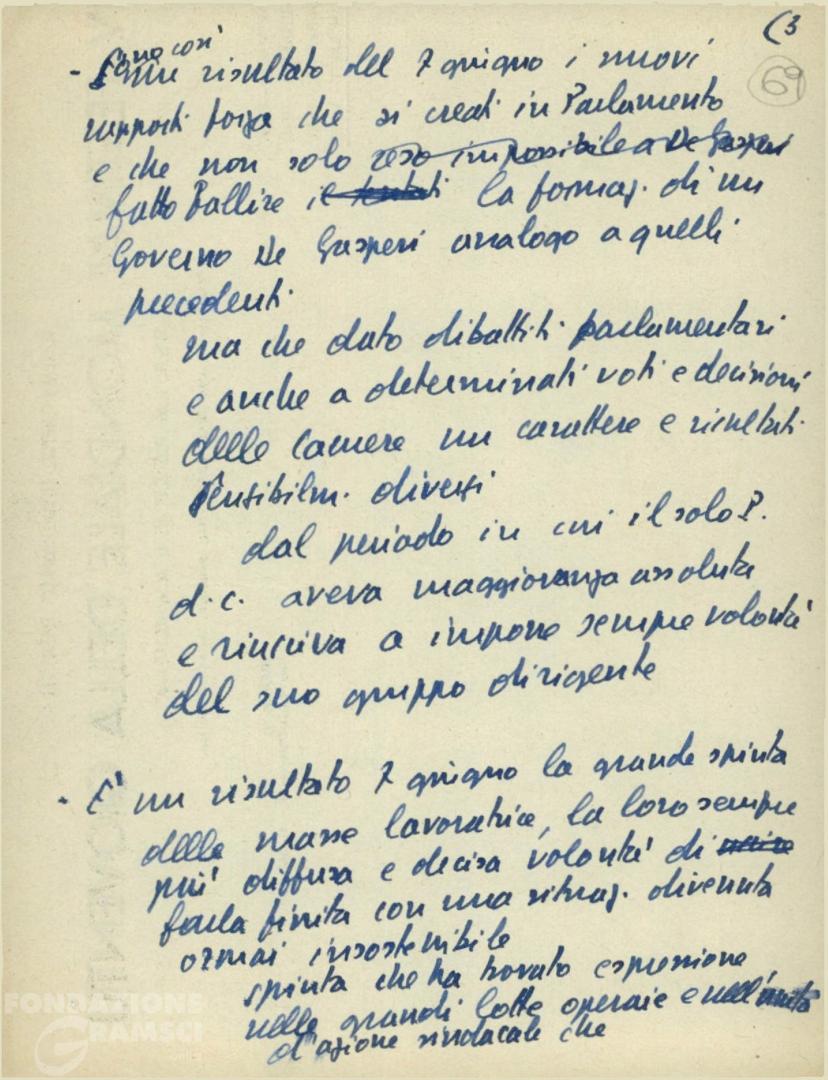 (3
69
- Sono così un risultato del 7 giugno i nuovi
rapporti forza che si creati in Parlamento
e che non solo reso impossibile a De Gasperi
fatto fallire il tentati la formaz. di un
Governo De Gasperi analogo a quelli
precedenti
ma che dato dibattiti parlamentari
e anche a determinati voti e decisioni
delle Camere un carattere e risultati
sensibilm. diversi
dal periodo in cui il solo P.
d.c. aveva maggioranza assoluta
e riusciva a imporre sempre volontà
del suo gruppo dirigente
- E' un risultato 7 giugno la grande spinta
delle masse lavoratrice, la loro sempre
più diffusa e decisa volontà di
farla finita con una situaz. divenuta
ormai insostenibile
spinta che ha trovato espressione
nelle grandi lotte operaie e nell'unità
d'azione sindacale che
FONDAZIONE
GRAMSCI